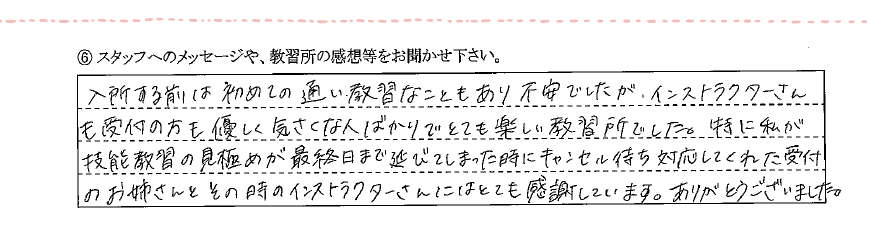 ⑥ スタッフへのメッセージや、教習所の感想等をお聞かせ下さい。
入所する前は初めての通い教習なこともあり不安でしたが、インストラクターさん
も受付の方も優しく気さくな人ばかりでとても楽しい教習所でした。特に私が
技能教習の見極めが最終日まで延びてしまった時にキャンセル待ち対応してくれた受付
のお姉さんとその時のインストラクターさんにはとても感謝しています。ありがとうございました。